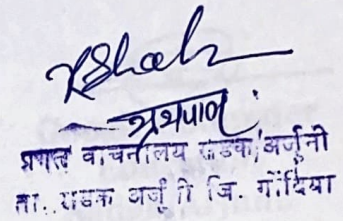 ग्रंथपाल
प्रगत वाचनालय सडक/अर्जुनी
ता. सडक अर्जुनी जि. गोंदिया